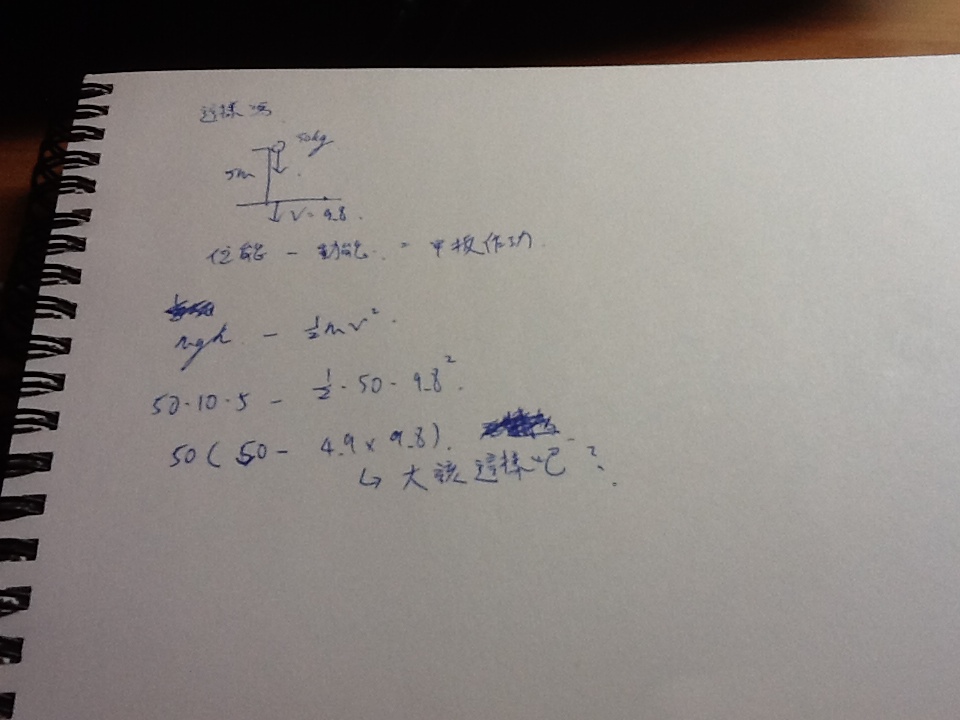 這樣嗎
50kg
5m
V = 9.8
位能 - 動能 = 甲板作功
mgh - ½mv²
50·10·5 - ½·50·9.8²
50(50 - 4.9×9.8)
↳ 大該這樣吧?